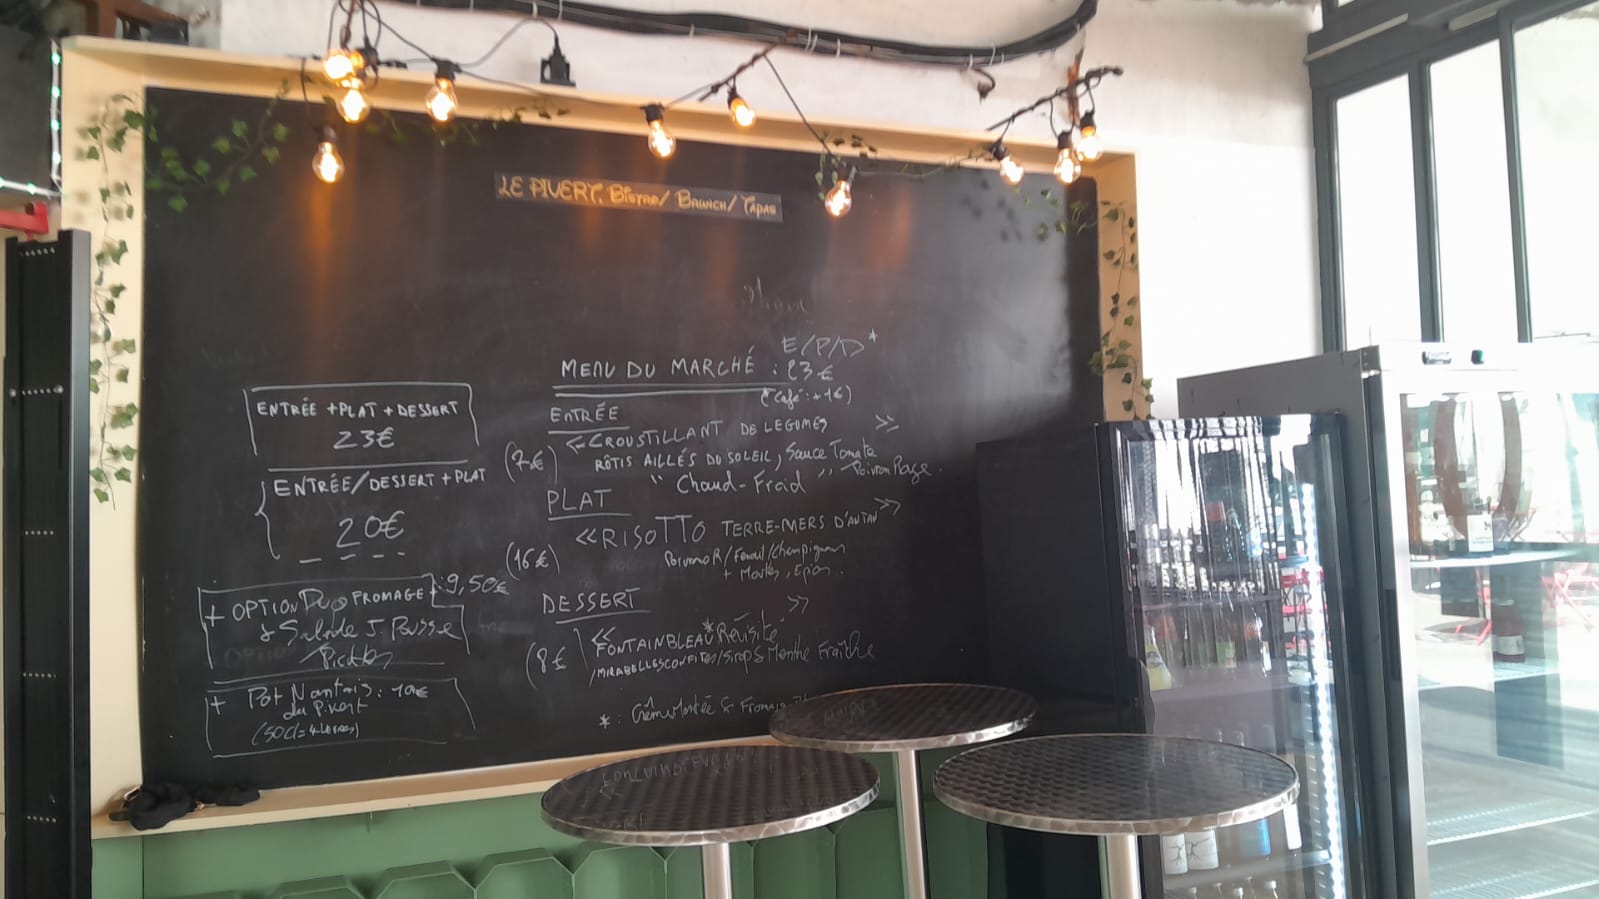 LE PIVERT, BISTRO/ BRUNCH/ TAPAS
ENTRÉE +PLAT + DESSERT
23€
ENTRÉE/DESSERT + PLAT
20€
+ OPTION Duo FROMAGE : 9,50€
& Salade J. Pousse
Pickles
+ Pot Nantais : 10€
du Pivert
(50cl = 4 verres)
E/P/D*
MENU DU MARCHÉ : 23€
(Café : + 1€)
ENTRÉE
(7€)
«CROUSTILLANT DE LEGUMES »
RÔTIS AILLÉS DU SOLEIL, Sauce Tomate
" Chaud-Froid " Poivron Rouge.
PLAT
(16€)
«RISOTTO TERRE-MERS D'ANTAN»
/Fenouil/Champignons
+
DESSERT
(8€
« FONTAINBLEAU* Révisité »
/MIRABELLES CONFITES/Sirop & Menthe Fraîche
* : Crème Montée & Fromage